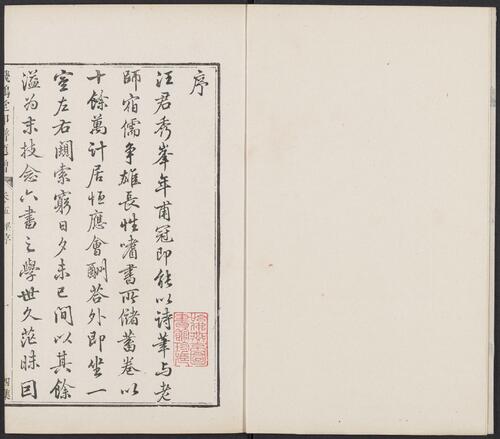 序
汪君秀峯年甫冠即能以詩筆与老
師宿儒争雄長性嗜書所儲蓄卷以
十餘萬計居恒應會酬荅外即坐一
室左右闚索窮日夕未已間以其餘
溢为末技念六書之學世久茫昧因